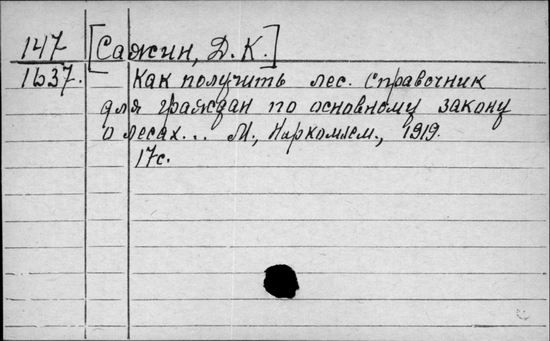 147
1637.
[Сажин, Д. К.]
Как получить лес. Справочник
для граждан по основному закону
о лесах... М., Наркомзем., 1919.
17с.